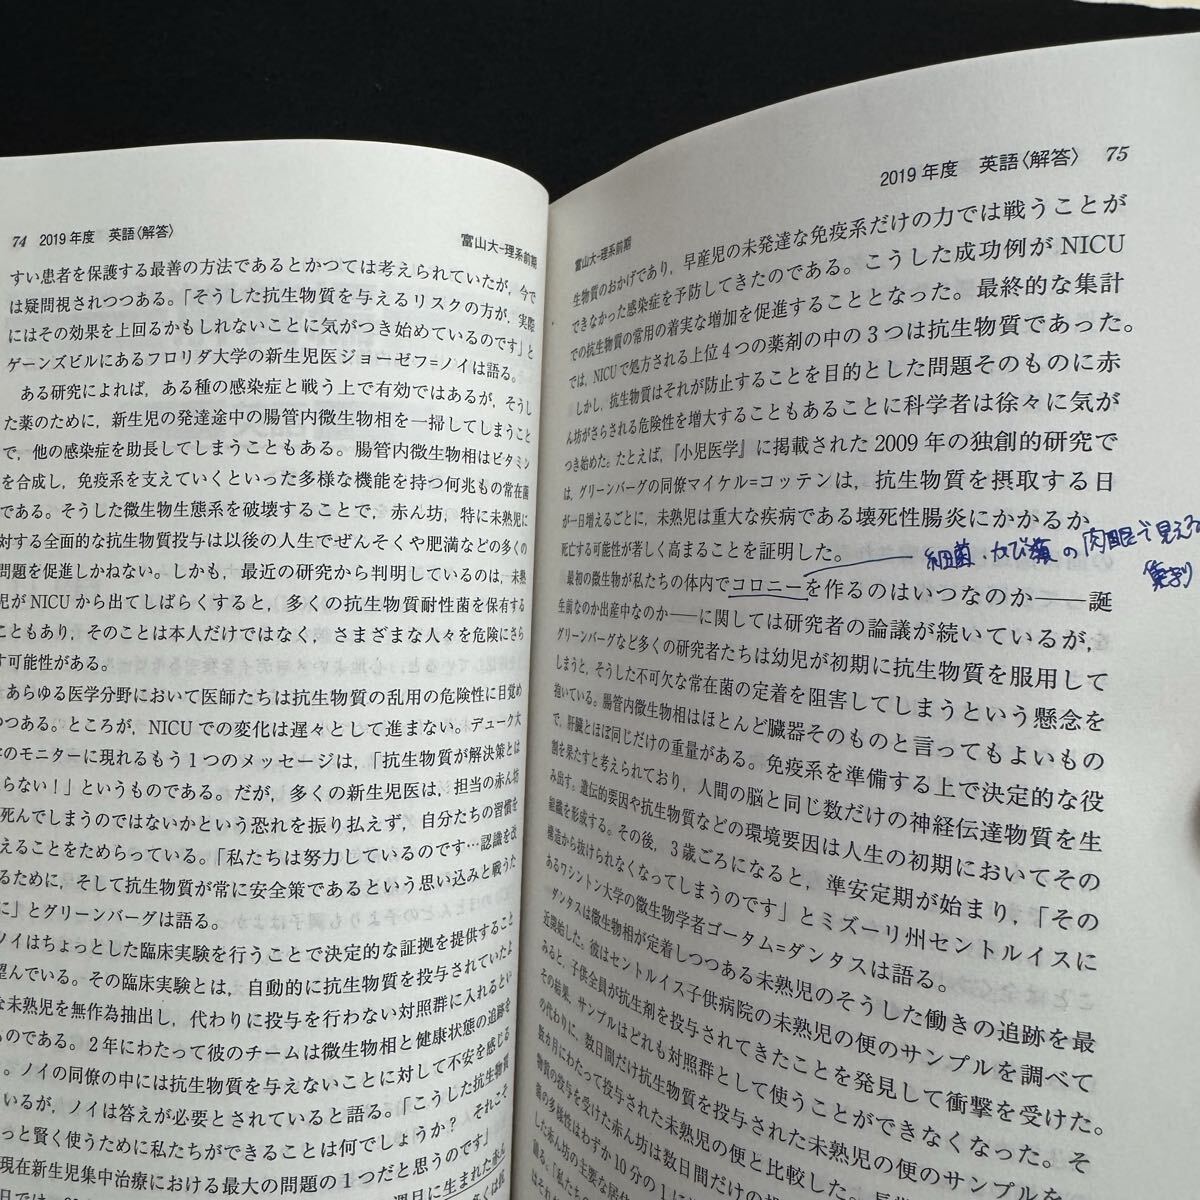 74 2019年度 英語〈解答〉 富山大-理系前期
すい患者を保護する最善の方法であるとかつては考えられていたが，今で
は疑問視されつつある。「そうした抗生物質を与えるリスクの方が，実際
にはその効果を上回るかもしれないことに気がつき始めているのです」と
ゲーンズビルにあるフロリダ大学の新生児医ジョーゼフ=ノイは語る。
ある研究によれば，ある種の感染症と戦う上で有効ではあるが，そうし
た薬のために，新生児の発達途中の腸管内微生物相を一掃してしまうこと
で，他の感染症を助長してしまうこともある。腸管内微生物相はビタミン
を合成し，免疫系を支えていくといった多様な機能を持つ何兆もの常在菌
である。そうした微生物生態系を破壊することで，赤ん坊，特に未熟児に
対する全面的な抗生物質投与は以後の人生でぜんそくや肥満などの多くの
問題を促進しかねない。しかも，最近の研究から判明しているのは，未熟
児がNICUから出てしばらくすると，多くの抗生物質耐性菌を保有する
こともあり，そのことは本人だけではなく，さまざまな人々を危険にさら
す可能性がある。
あらゆる医学分野において医師たちは抗生物質の乱用の危険性に目覚め
つつある。ところが，NICUでの変化は遅々として進まない。デューク大
のモニターに現れるもう1つのメッセージは，「抗生物質が解決策とは
らない！」というものである。だが，多くの新生児医は，担当の赤ん坊
死んでしまうのではないかという恐れを振り払えず，自分たちの習慣を
えることをためらっている。「私たちは努力しているのです…認識を改
るために，そして抗生物質が常に安全策であるという思い込みと戦うた
に」とグリーンバーグは語る。
ノイはちょっとした臨床実験を行うことで決定的な証拠を提供すること
望んでいる。その臨床実験とは，自動的に抗生物質を投与されていたよ
な未熟児を無作為抽出し，代わりに投与を行わない対照群に入れるとい
ものである。2年にわたって彼のチームは微生物相と健康状態の追跡を
。ノイの同僚の中には抗生物質を与えないことに対して不安を感じる
いるが，ノイは答えが必要とされていると語る。「こうした抗生物質
っと賢く使うために私たちができることは何でしょうか？ それこそ
現在新生児集中治療における最大の問題の1つだと思うのです」
週目に生まれた赤ん
2019年度 英語〈解答〉 75
富山大-理系前期
生物質のおかげであり，早産児の未発達な免疫系だけの力では戦うことが
できなかった感染症を予防してきたのである。こうした成功例がNICU
での抗生物質の常用の着実な増加を促進することとなった。最終的な集計
では，NICUで処方される上位4つの薬剤の中の3つは抗生物質であった。
しかし，抗生物質はそれが防止することを目的とした問題そのものに赤
ん坊がさらされる危険性を増大することもあることに科学者は徐々に気が
つき始めた。たとえば，『小児医学』に掲載された2009年の独創的研究で
は，グリーンバーグの同僚マイケル=コッテンは，抗生物質を摂取する日
が一日増えるごとに，未熟児は重大な疾病である壊死性腸炎にかかるか，
死亡する可能性が著しく高まることを証明した。
細菌・カビ類の肉眼で見える
集剤
最初の微生物が私たちの体内でコロニーを作るのはいつなのか――誕
生前なのか出産中なのか――に関しては研究者の論議が続いているが，
グリーンバーグなど多くの研究者たちは幼児が初期に抗生物質を服用して
しまうと，そうした不可欠な常在菌の定着を阻害してしまうという懸念を
抱いている。腸管内微生物相はほとんど臓器そのものと言ってもよいもの
で，肝臓とほぼ同じだけの重量がある。免疫系を準備する上で決定的な役
割を果たすと考えられており，人間の脳と同じ数だけの神経伝達物質を生
み出す。遺伝的要因や抗生物質などの環境要因は人生の初期においてその
組織を形成する。その後，3歳ごろになると，準安定期が始まり，「その
構造から抜けられなくなってしまうのです」とミズーリ州セントルイスに
あるワシントン大学の微生物学者ゴータム=ダンタスは語る。
ダンタスは微生物相が定着しつつある未熟児のそうした働きの追跡を最
近開始した。彼はセントルイス子供病院の未熟児の便のサンプルを調べて
みると，子供全員が抗生剤を投与されてきたことを発見して衝撃を受けた。
その結果，サンプルはどれも対照群として使うことができなくなった。そ
の代わりに，数日間だけ抗生物質を投与された未熟児の便のサンプルを
数カ月にわたって投与された未熟児の便と比較した。
物質の投与を受けた赤ん坊は数日間だけの
の多様性はわずか10分の1に